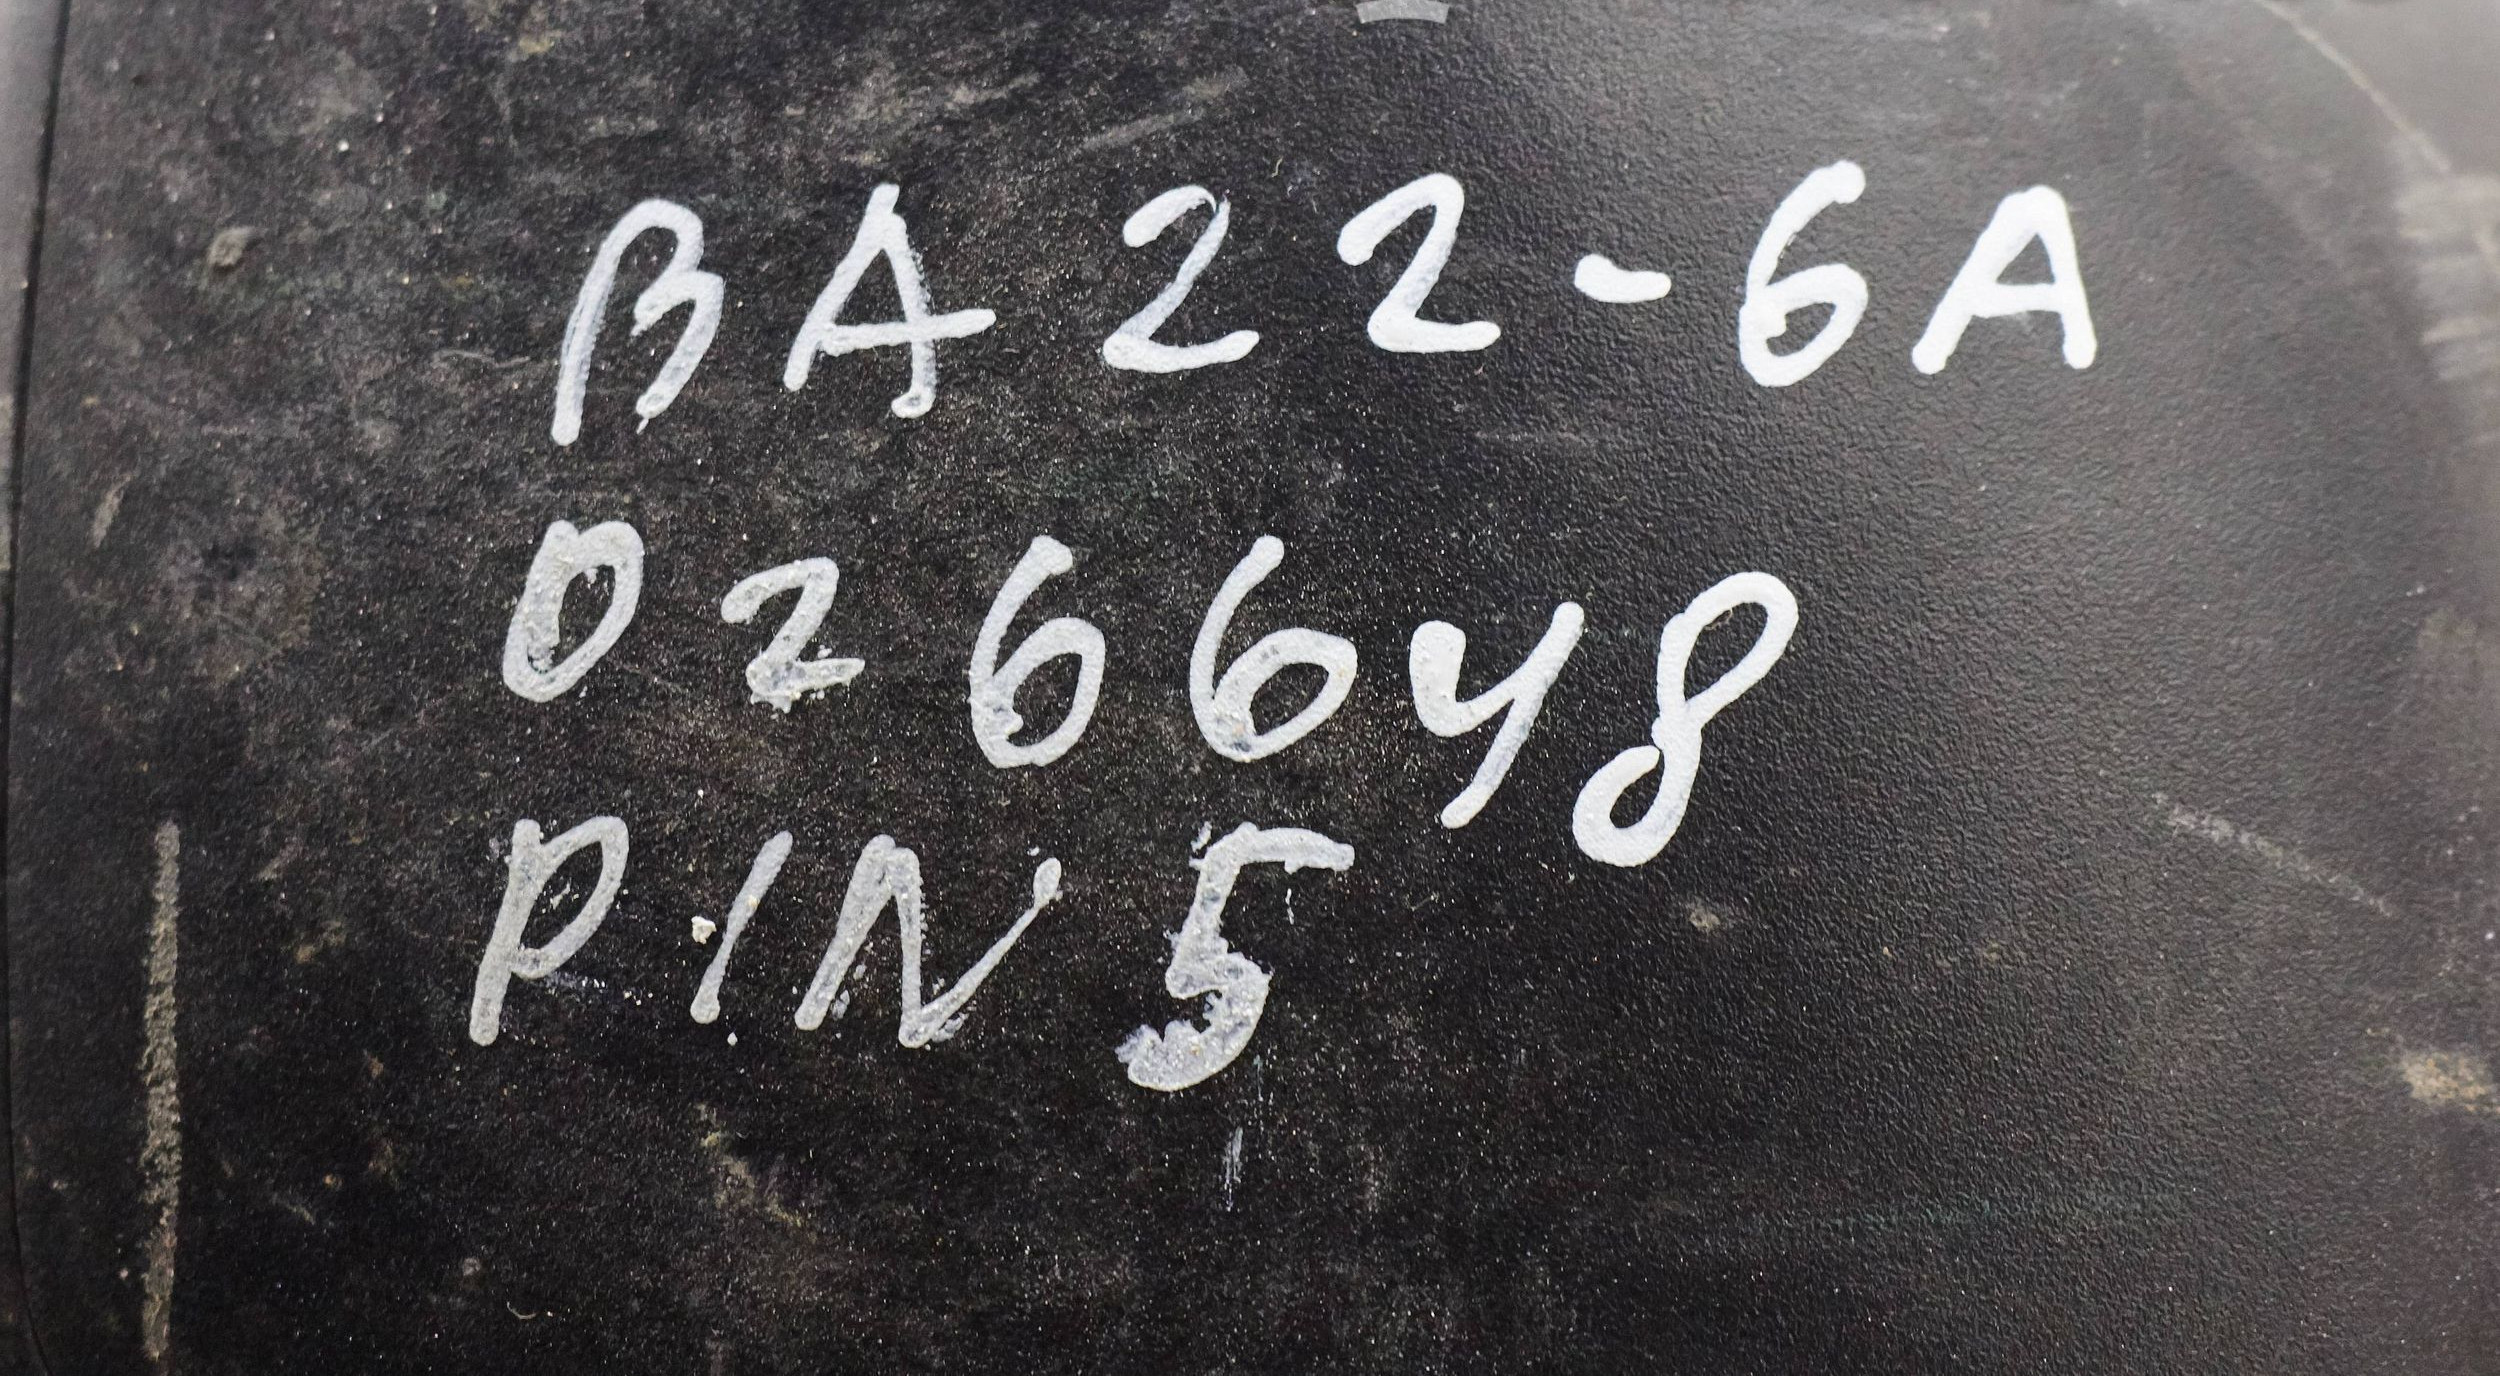 BA22-6A
026648
PIN 5